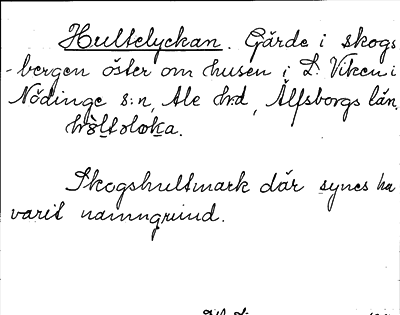 Hultelyckan. Gärde i skogs
-bergen öster om husen i L. Viken i
Nödinge s:n, Ale hd, Älfsborgs län.
Skogshultmark där synes ha
varit namngrund.